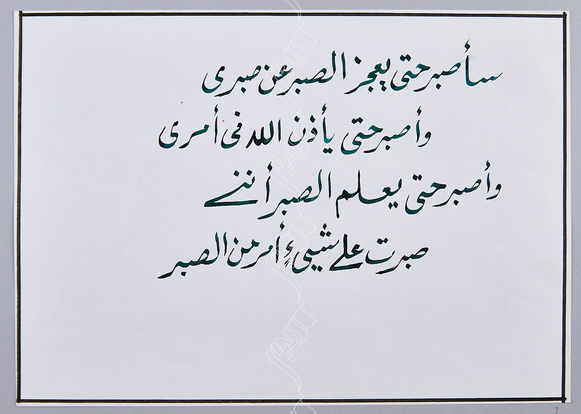 سأصبر حتى يعجز الصبر عن صبرى
وأصبر حتى يأذن الله فى أمرى
وأصبر حتى يعلم الصبر أننے
صبرت علے شيئ أمر من الصبر